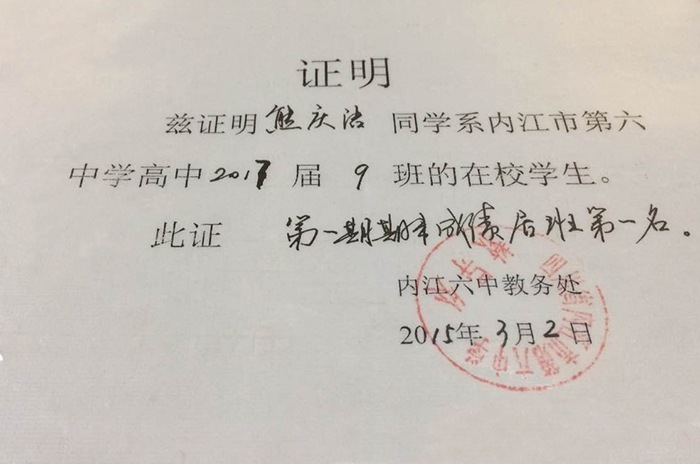 证明
兹证明熊庆洁 同学系内江市第六
中学高中2017 届 9 班的在校学生。
此证 第一期期末成绩居班第一名。
内江六中教务处
2015年3月2日